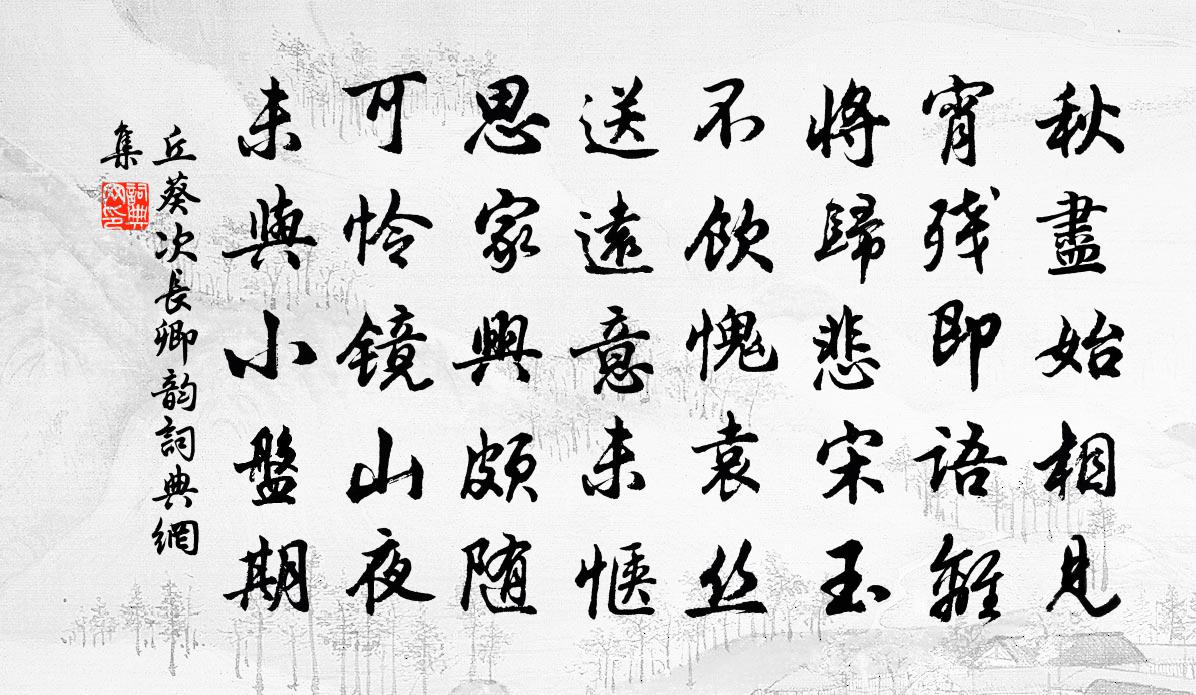 秋盡始相見
宵残即語離
将歸悲宋玉
不飲愧袁丝
送遠意未惬
思家興頗随
可怜镜山夜
未與小盤期
丘葵次長卿韵詞典網
集
詞典網印